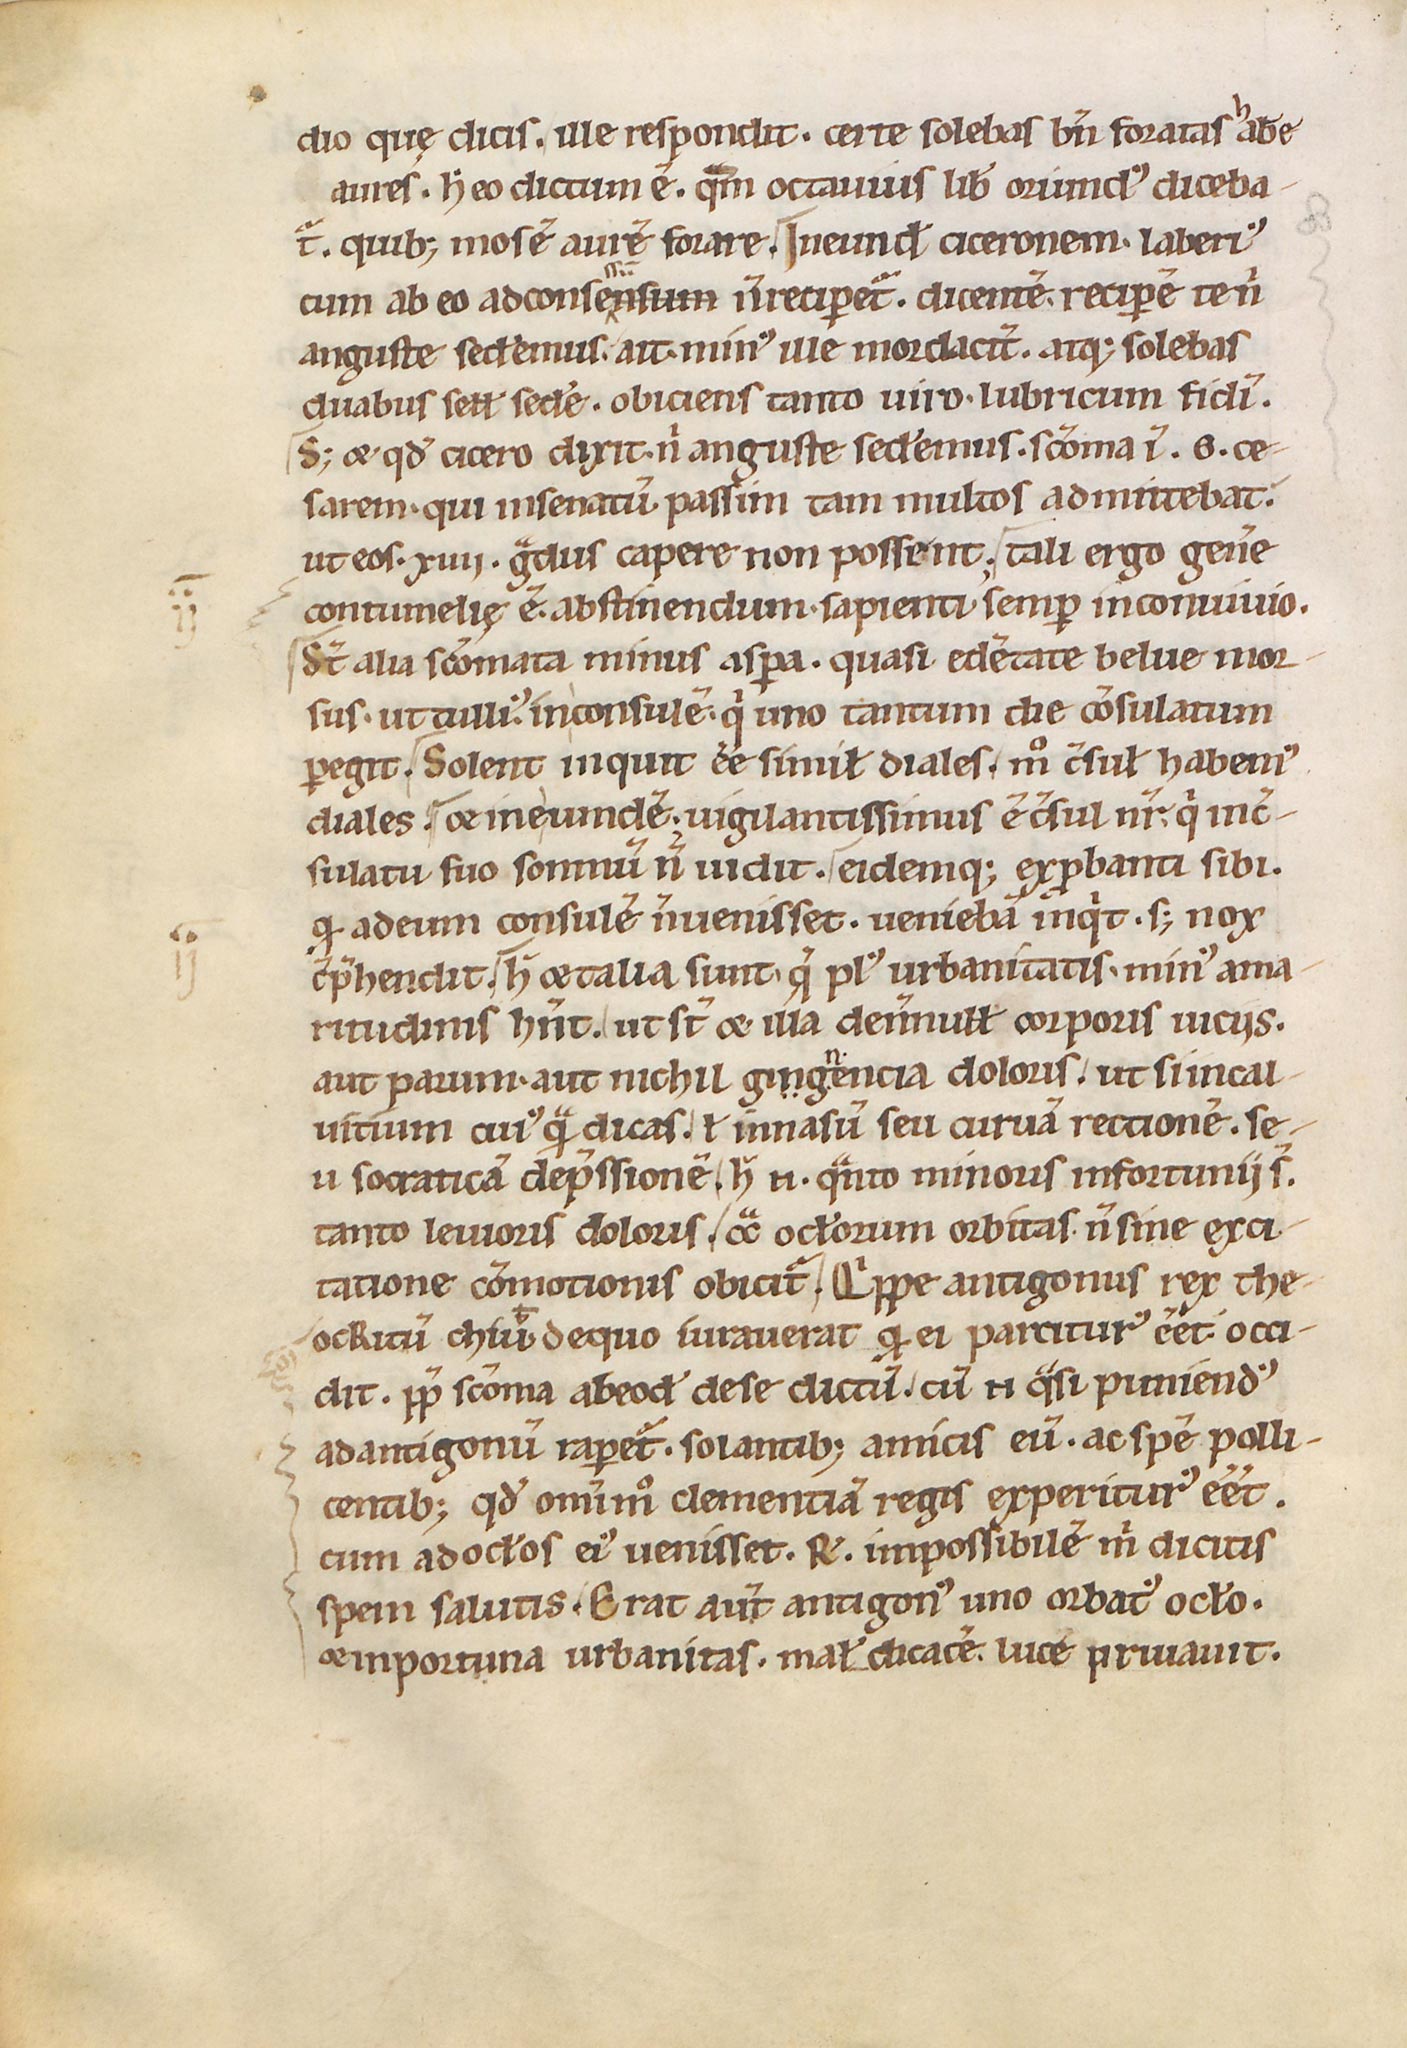 dio quę dicis. ille respondit. certe solebas bñ foratas habe
aures. h̃ eo dictum ẽ. qm̃ octauius lib oriund᷒ diceba-
t̃. quib; mos ẽ aurẽ forare. Ineund̃ ciceronem. laberi᷒
cum ab eo adconsensum ñ reciperet̃. dicentẽ. reciperẽ te ñ
anguste sederemus. ait. min᷒ ille mordacit̃. atq; solebas
duabus sell̃ sedẽ. obiciens tanto uiro. lubricum fidei.
S; & qd̃ cicero dixit. ñ anguste sederemus. scõma ĩ. G. ce-
sarem. qui insenatũ passim tam multos admittebat.
ut eos. xiiij. gͣdus capere non possent. tali ergo geñe
contumelię ẽ. abstinendum. sapienti semp̱ inconuiuio.
St̃ alia scõmata minus asp̱a. quasi edẽtate belue mor-
sus. ut tulli᷒. inconsulẽ. qͥ uno tantum die cõsulatum
p̱egit. Solent inquit eẽ simil̃ diales. mͦ c̃sul̃ habem᷒
diales. & ineundẽ. uigilantissimus ẽ c̃sul nr̃. qͥ inc̃-
sulatu suo somnũ ñ uidit. eidemq; exp̱banti sibi.
qͩ adeum consulẽ ñ uenisset. ueniebã inqͥt. s; nox
c̃p̃hendit. h̃ & talia sunt. qͥ pl᷒ urbanitatis. min᷒ ama-
ritudinis hñt. ut st̃ & illa deñnull̃ corporis uiciis.
aut parum. aut nichil gingnencia doloris. ut si incal-
uitium cui᷒ qͣ dicas. ł innasũ seu curuã rectionẽ. se-
u socraticã dep̃ssionẽ. h̃ n. qͣnto minoris infortunij s̃.
tanto leuioris doloris. ac̃ oc̃lorum orbitas. ñ sine exci-
tatione cõmotionis obicit̃. Qͥppe antigonus rex the-
ocritũ chiũ dequo iurauerat qͩ ei parcitur᷒ eẽt. occi-
dit. pp̃ scõma abeod̃ dese dictũ. cũ n qͣsi puniend᷒
adantigonũ rap̱et̃. solantib; amicis eũ. ac spẽ polli-
centib; qd̃ omñmͦ clementiã regis experitur᷒ eẽt.
cum adocl̃os ei᷒ uenisset. R̃. impossibilẽ mͥ dicitis
spem salutis. Erat aut̃ antigon᷒ uno orbat᷒ ocl̃o.
& inportuna urbanitas. mal̃ dicacẽ. luce priuauit.